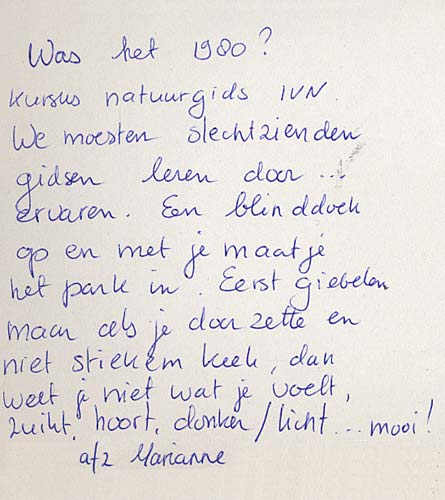 Was het 1980?
kursus natuurgids IVN.
We moesten slechtzienden
gidsen leren door ...
ervaren. Een blinddoek
op en met je maatje
het park in. Eerst giebelen
maar als je door zette en
niet stiekem keek, dan
weet je niet wat je voelt,
ruikt, hoort, donker/licht... mooi!
afz Marianne